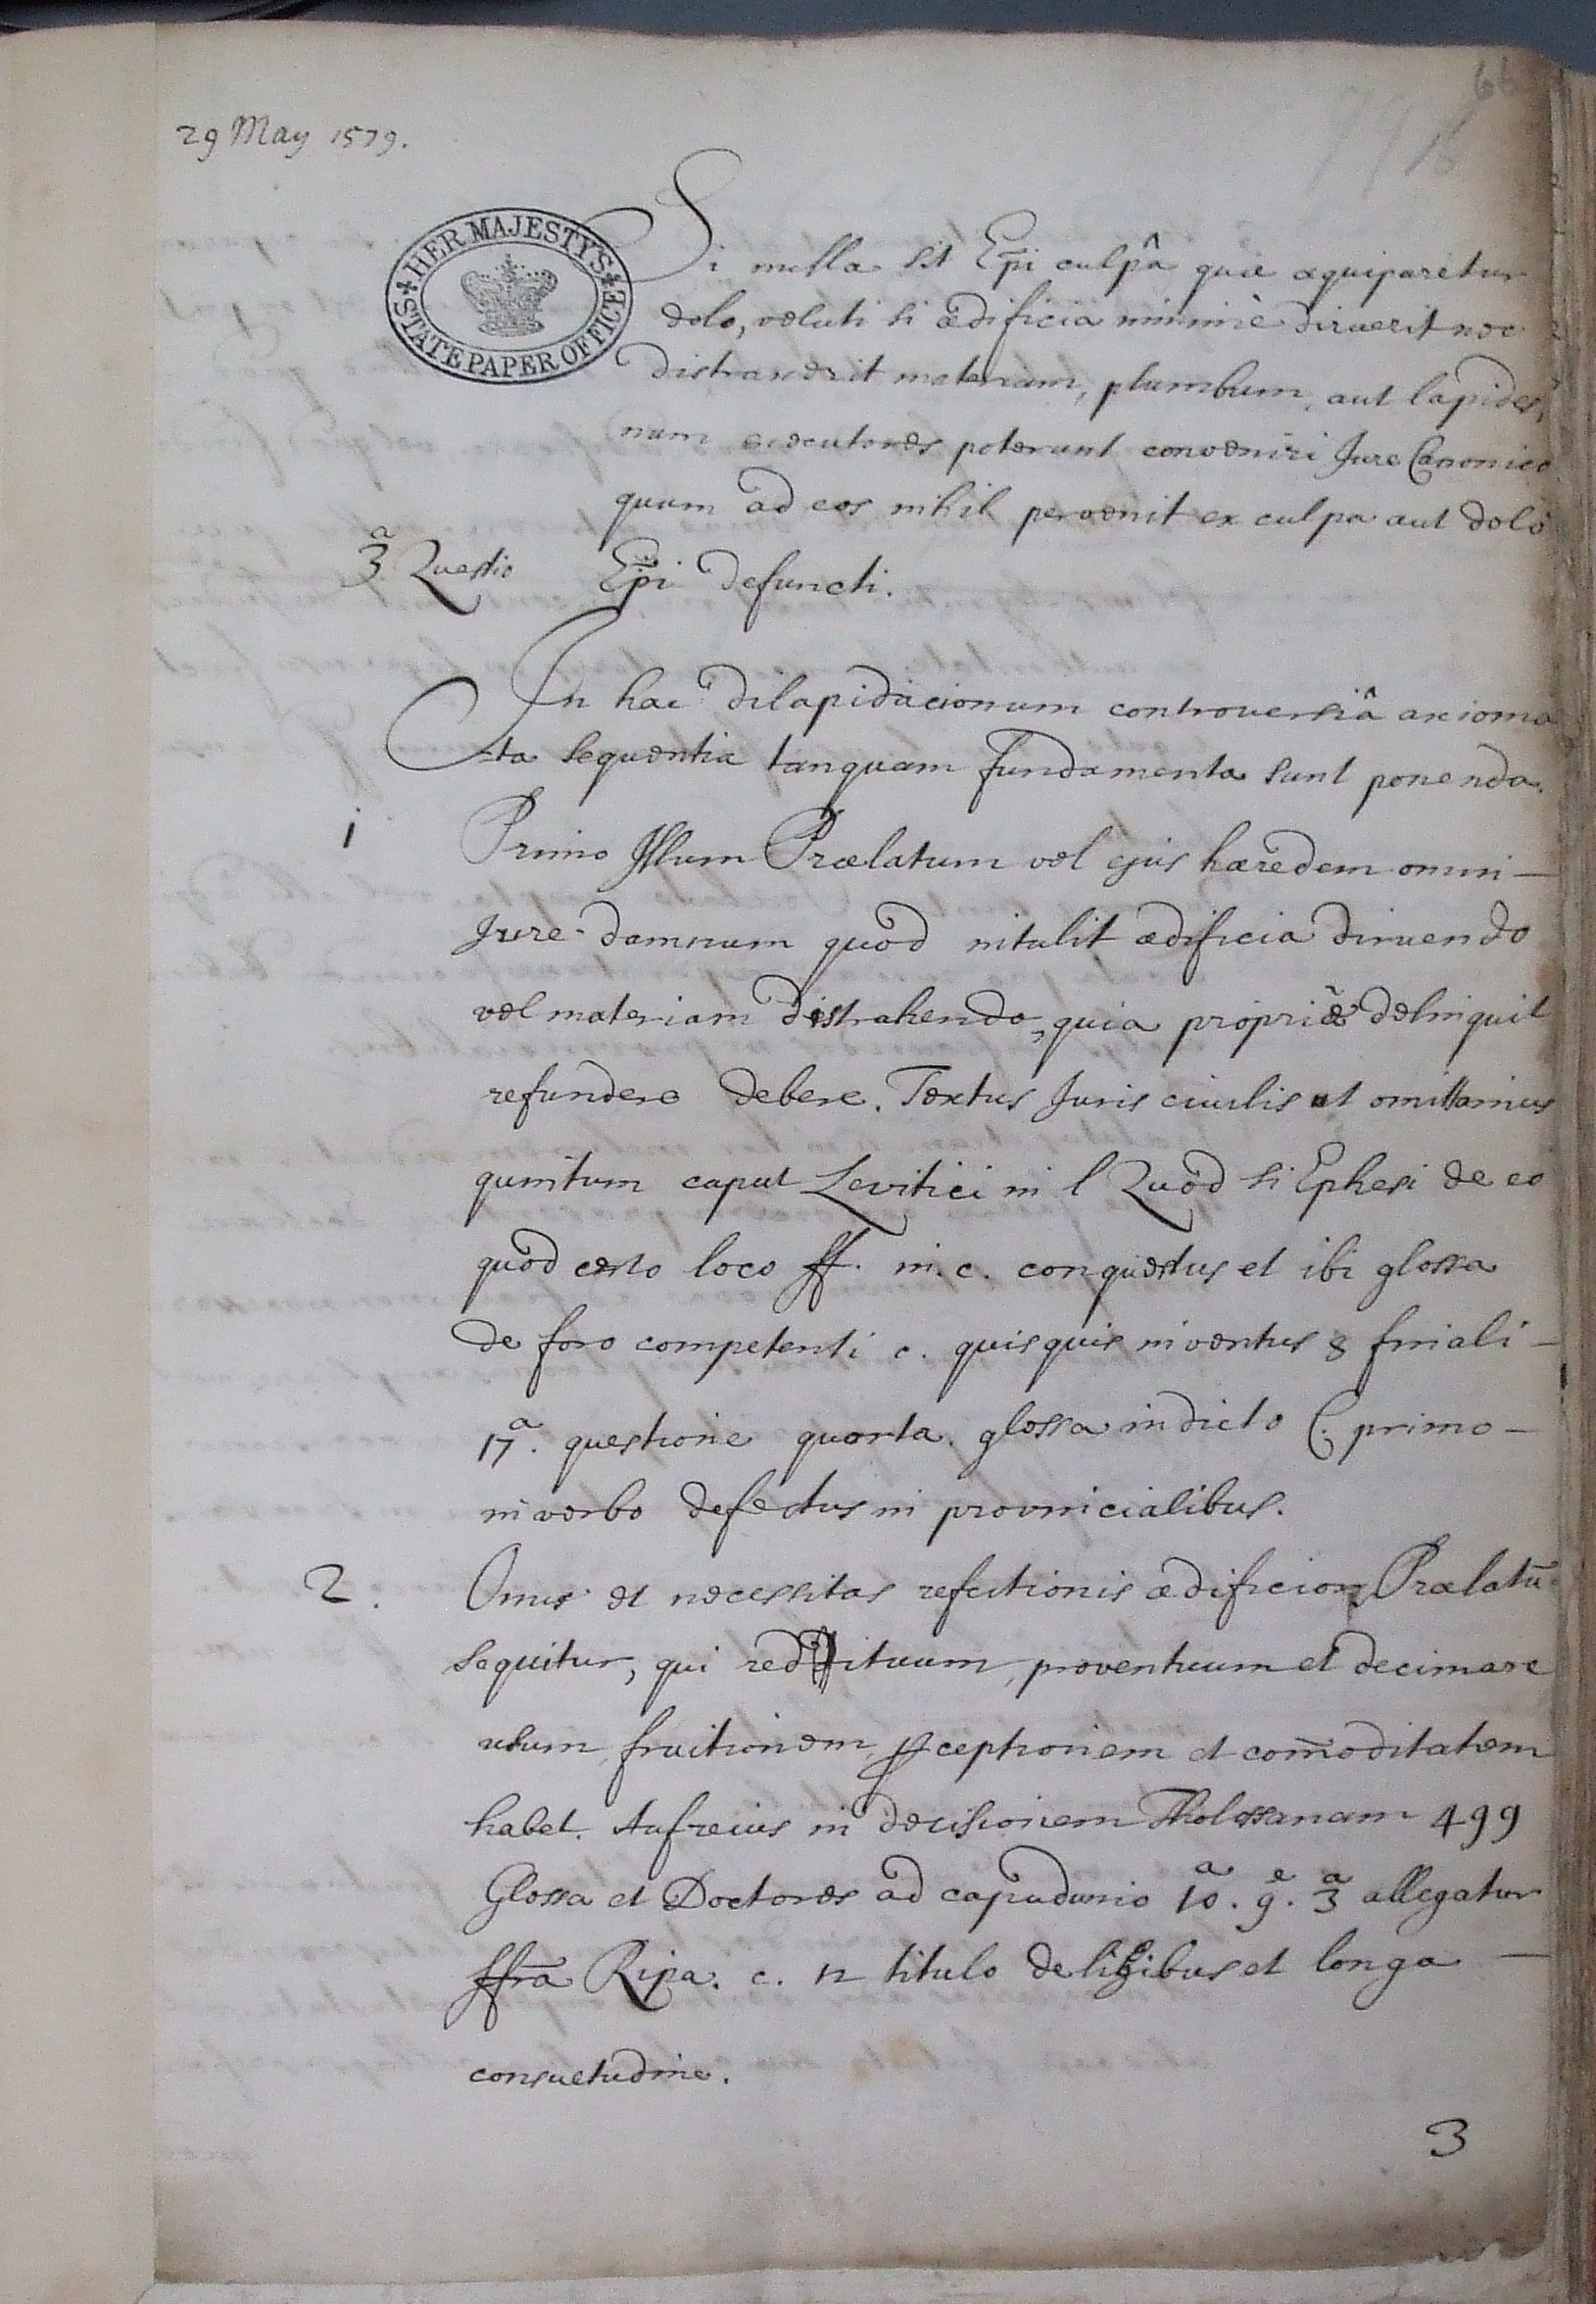 66
29 May 1579.
HER MAJESTY'S STATE PAPER OFFICE
Si nulla sit Ep̃i culpâ quæ æquiparetur
dolo, veluti si ædificia minimè diruerit nec
distraxerit materiam, plumbum, aut lapides,
num executores poterunt conveniri Jure Canonico
quum ad eos nihil pervenit ex culpa aut dolo
3ª. Questio Ep̃i defuncti.
In hac dilapidacionum controversiâ axioma
ta sequentia tanquam fundamenta sunt ponenda.
i Primo Illum Prælatum vel ejus hæredem omni -
Jure damnum quod intulit ædificia diruendo
vel materiam distrahendo, quia propriè delinquit
refundere debere. Textus Juris civilis ut omittamus
quintum caput Levitici in l Quod si Ephesi de eo
quod certo loco ff. in. c. conquestus et ibi glossa
de foro competenti c. quisquis inventus § finali -
17ª. questione quarta. glossa in dicto C. primo -
in verbo defectus in provincialibus.
2. Onus et necessitas refectionis ædificior Prælatũ
sequitur, qui reddituum, proventuum et decimare
usum, fruitionem, pceptionem et com̃oditatem
habet. Aufreius in decisionem Tholossanam 499
Glossa et Doctores ad capudunio 10ª. 9ᵉ. 3ª allegatur
ffra Ripa. c. 12 titulo de libibus et longa -
consuetudine.
3